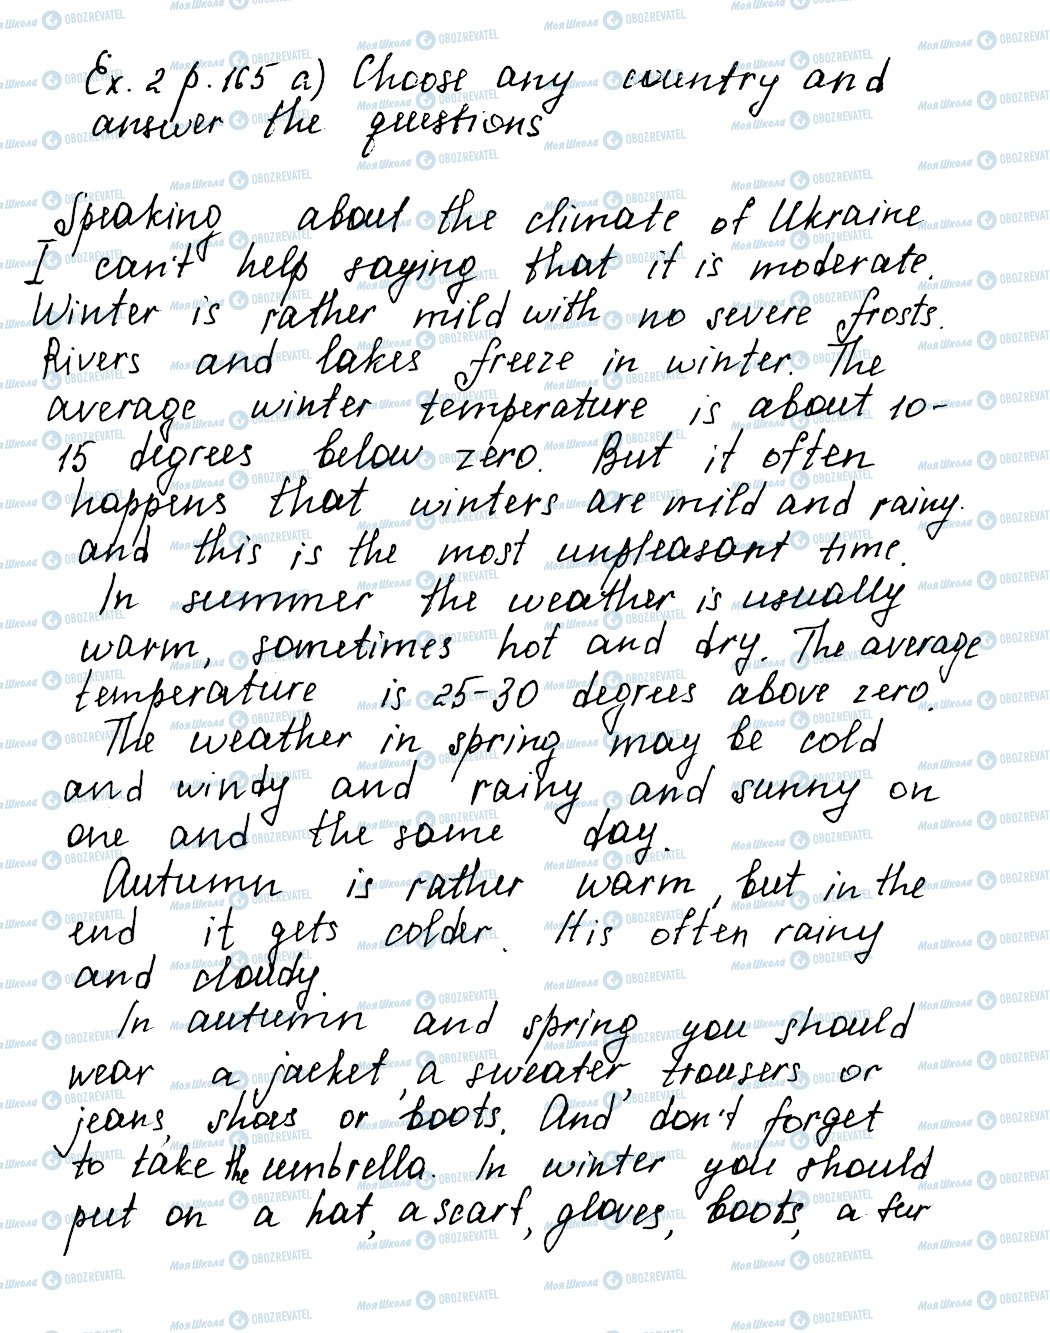 Ex. 2 p. 165 a) Choose any country and
answer the questions
Speaking about the climate of Ukraine
I can't help saying that it is moderate.
Winter is rather mild with no severe frosts.
Rivers and lakes freeze in winter. The
average winter temperature is about 10-
15 degrees below zero. But it often
happens that winters are mild and rainy.
and this is the most unpleasant time.
In summer the weather is usually
warm, sometimes hot and dry. The average
temperature is 25-30 degrees above zero.
The weather in spring may be cold
and windy and rainy and sunny on
one and the same day.
Autumn is rather warm, but in the
end it gets colder. It is often rainy
and cloudy.
In autumn and spring you should
wear a jacket, a sweater, trousers or
jeans, shoes or boots. And don't forget
to take the umbrella. In winter you should
put on a hat, a scarf, gloves, boots, a fur
МояШкола OBOZREVATEL